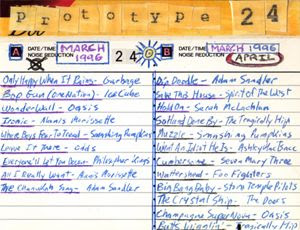 prototype 24
A DATE/TIME MARCH 1996 NOISE REDUCTION
24
B DATE/TIME MARCH 1996 APRIL NOISE REDUCTION
Only Happy When It Rains - Garbage
Bop Gun (One Nation) - Ice Cube
Wonderwall - Oasis
Ironic - Alanis Morissette
Where Boys Fear To Tread - Smashing Pumpkins
Leave It There - Odds
Everyone'll Let You Down - Philosopher Kings
All I Really Want - Alanis Morissette
The Chanukah Song - Adam Sandler
Dip Doodle - Adam Sandler
Save This House - Spirit of the West
Hold On - Sarah McLachlan
So Hard Done By - The Tragically Hip
Muzzle - Smashing Pumpkins
What An Idiot He Is - Ashley MacIsaac
Cumbersome - Seven Mary Three
Wattershed - Foo Fighters
Big Bang Baby - Stone Temple Pilots
The Crystal Ship - The Doors
Champagne Supernova - Oasis
Butts Wigglin' - Tragically Hip